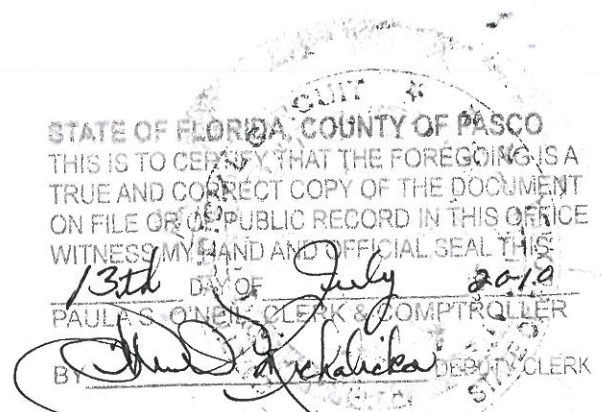 STATE OF FLORIDA, COUNTY OF PASCO
THIS IS TO CERTIFY THAT THE FOREGOING IS A
TRUE AND CORRECT COPY OF THE DOCUMENT
ON FILE OR OF PUBLIC RECORD IN THIS OFFICE
WITNESS MY HAND AND OFFICIAL SEAL THIS
13th DAY OF July 2010
PAULA S. O'NEIL, CLERK & COMPTROLLER
BY DEPUTY CLERK